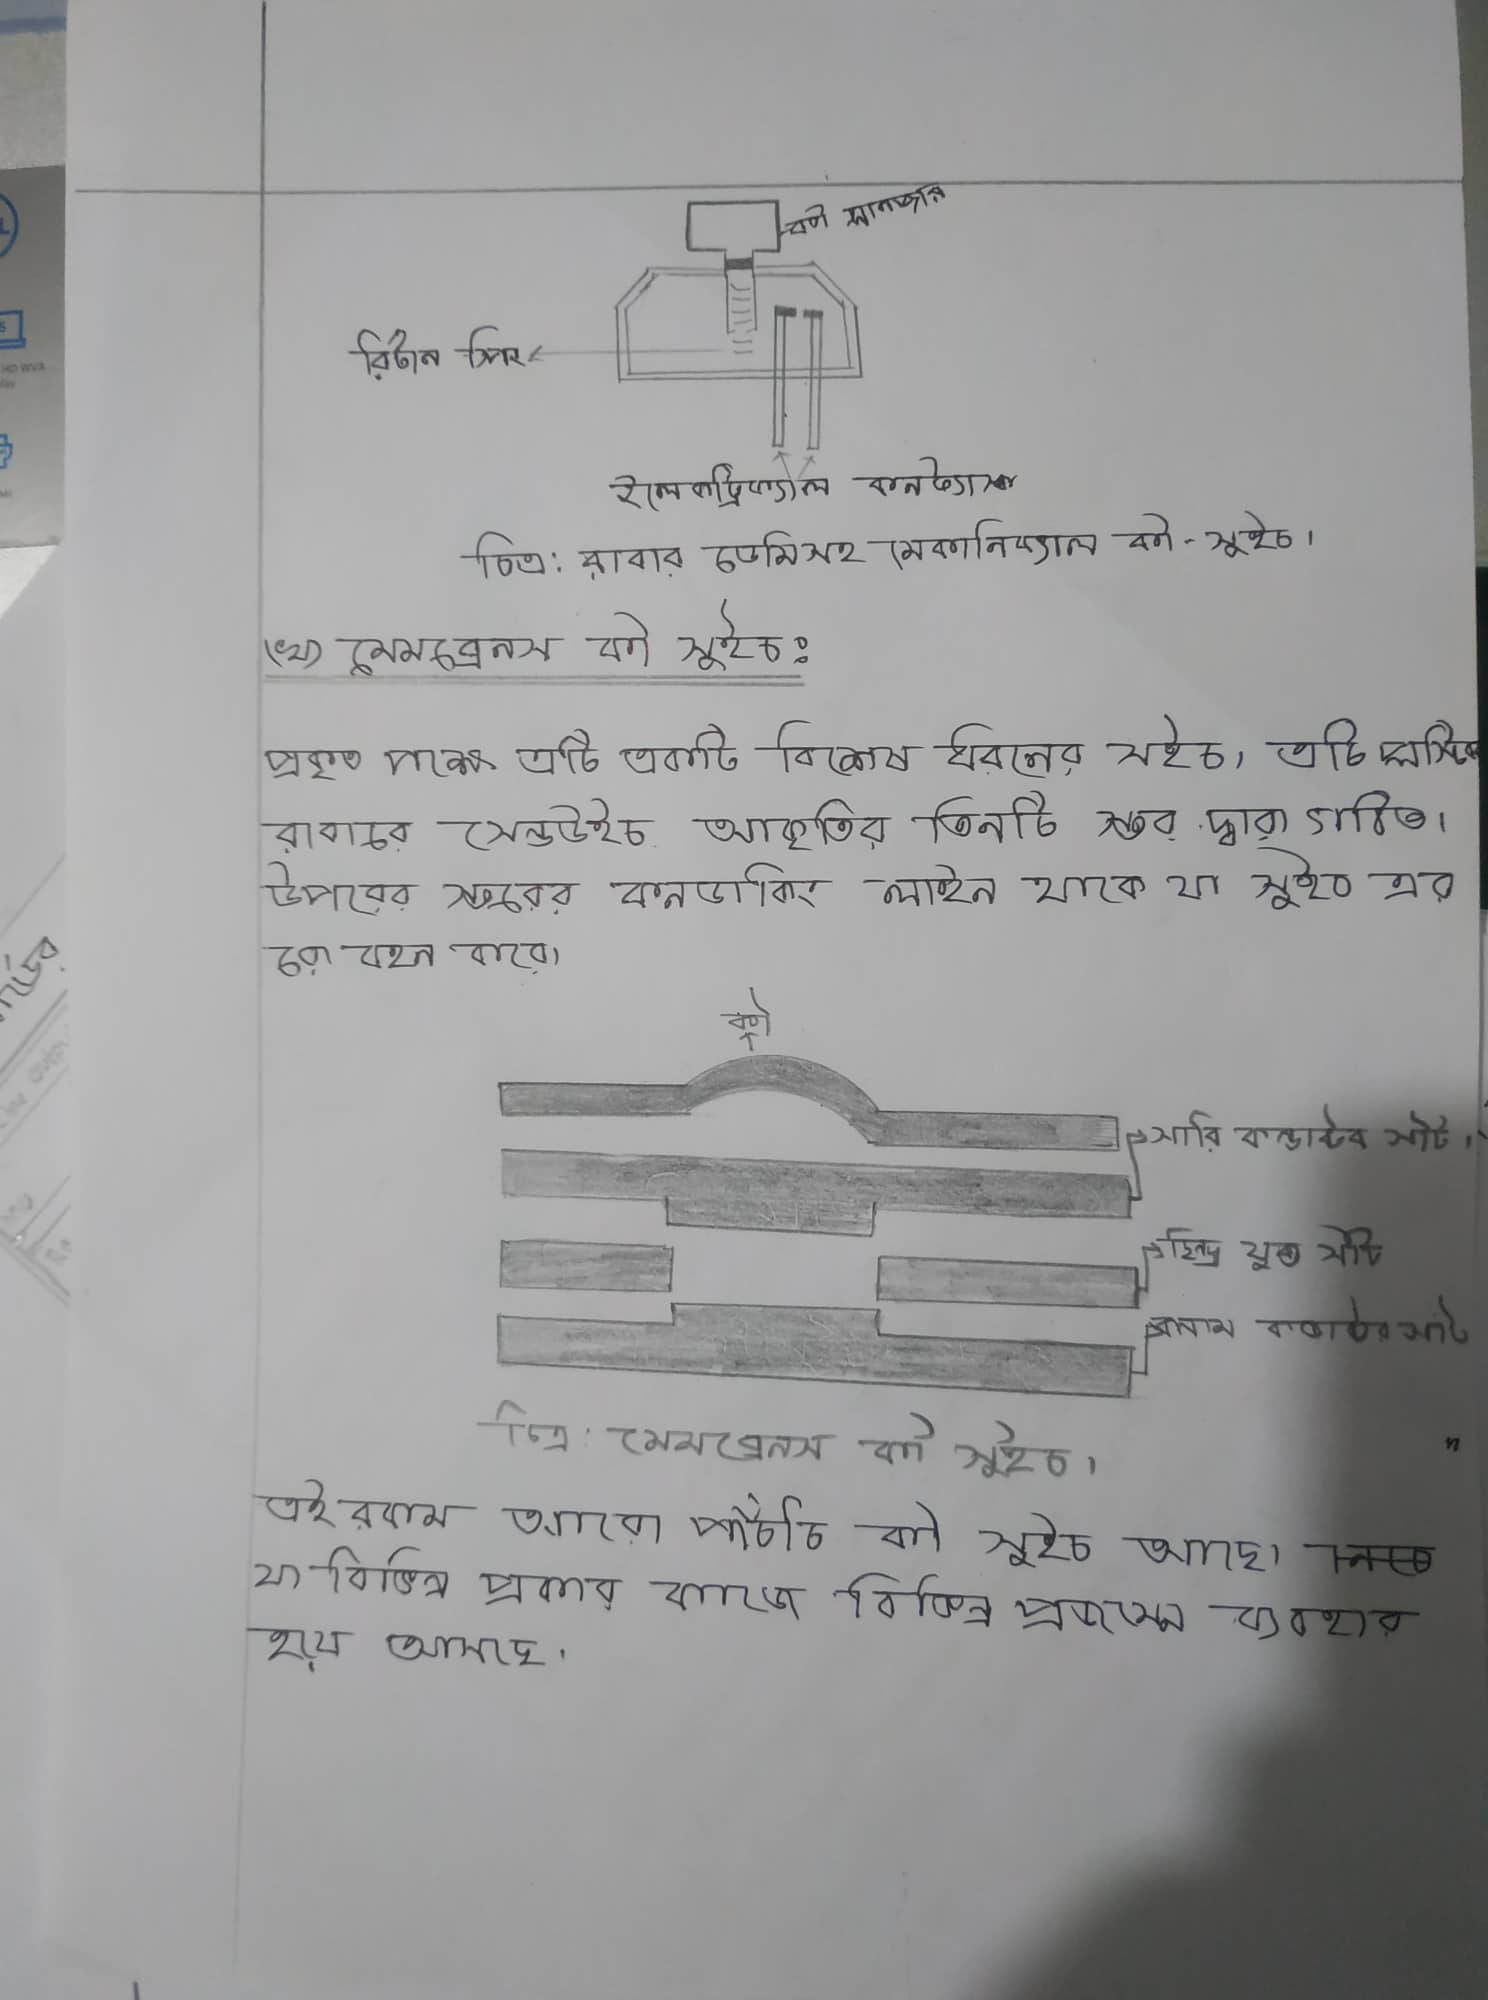 কী প্লানজার
রিটার্ন স্প্রিং
ইলেকট্রিক্যাল কনট্যাক্ট
চিত্র: রাবার ডোমসহ মেকানিক্যাল কী-সুইচ।
(খ) মেমব্রেনস কী সুইচঃ
প্রকৃত পক্ষে এটি একটি বিশেষ ধরনের সইচ। এটি প্লাস্টিক
রাবারের সেন্ডউইচ আকৃতির তিনটি স্তর দ্বারা গঠিত।
উপরের স্তরের কনডাকিং লাইন থাকে যা সুইচ এর
রো বহন করে।
কী
সারি কন্ডাক্টর সীট।
ছিদ্র যুক্ত সীট
কলাম কন্ডাক্টর সীট
চিত্র: মেমব্রেনস কী সুইচ।
এই রকম আরো পাঁচটি কী সুইচ আছে।
যা বিভিন্ন প্রকার কাজে বিভিন্ন ব্যবহার
হয়ে আসছে।